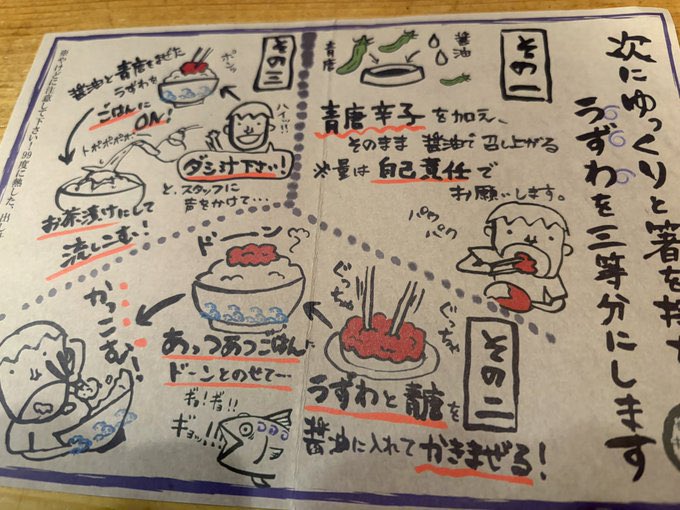 次にゆっくりと箸を持ち
うずわを三等分にします
その一
醤油
青唐
青唐辛子を加え、
そのまま 醤油で召し上がる
※量は自己責任で
お願いします。
パク
パク
その二
ぐっちゃ
ぐっちゃ
うずわと青唐を
醤油に入れてかきまぜる!
ドーン
あっつあつごはんに
ドーンとのせて…
ギョ!ギョ!!
ギョッ!!!
かっこむ!
その三
醤油と青唐をまぜた
うずわを
ごはんに
ON!
ポンッ
ハイッ!!
ダシ汁下さい!
と、スタッフに
声をかけて…
トポポポポ…
お茶漬けにして
流しこむ!
※やけどに注意して下さい!99度に熱した、出し